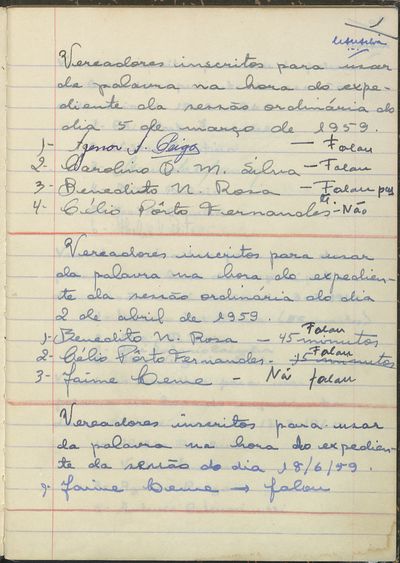 1
Vereadores inscritos para usar
da palavra na hora do expe-
diente da sessão ordinária do
dia 5 de março de 1959.
1- Agenor J. — Falou
2- Carolino O. M. Silva — Falou
3- Benedito N. Rosa — Falou
4- Célio Pôrto Fernandes - Não
Vereadores inscritos para usar
da palavra na hora do expedien-
te da sessão ordinária do dia
2 de abril de 1959.
1- Benedito N. Rosa - 45 minutos Falou
2- Célio Pôrto Fernandes - 15 minutos Falou
3- Jaime Leme - Não falou
Vereadores inscritos para usar
da palavra na hora do expedien-
te da sessão do dia 18/6/59.
Jaime Leme → falou